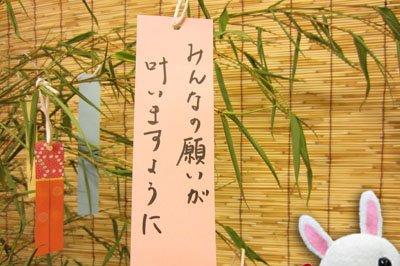 みんなの願いが
叶いますように